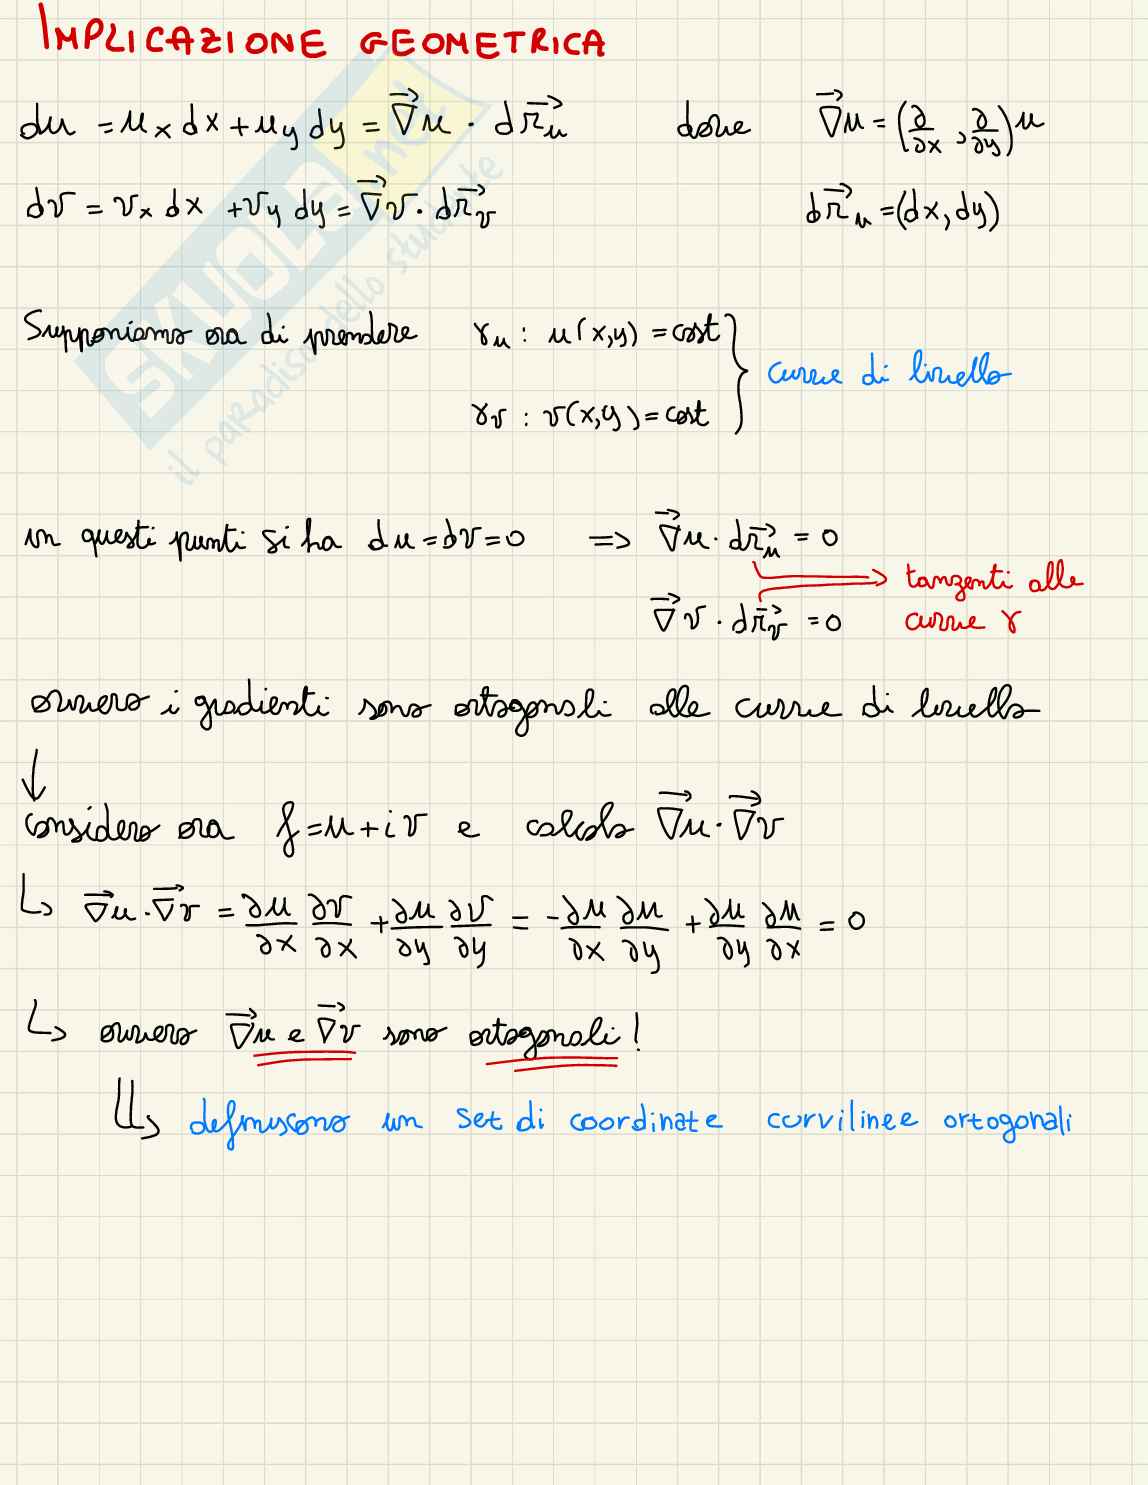 IMPLICAZIONE GEOMETRICA
du = u_x dx + u_y dy = ∇⃗u · dr⃗_u dove ∇⃗u = (∂/∂x, ∂/∂y)u
dv = v_x dx + v_y dy = ∇⃗v · dr⃗_v dr⃗_u = (dx, dy)
Supponiamo ora di prendere γ_u : u(x,y) = cost
curve di livello
γ_v : v(x,y) = cost
in questi punti si ha du = dv = 0 ⇒ ∇⃗u · dr⃗_u = 0
tangenti alle
∇⃗v · dr⃗_v = 0 curve γ
ovvero i gradienti sono ortogonali alle curve di livello
↓
considero ora f = u + iv e calcolo ∇⃗u · ∇⃗v
↳ ∇⃗u · ∇⃗v = ∂u/∂x ∂v/∂x + ∂u/∂y ∂v/∂y = -∂u/∂x ∂u/∂y + ∂u/∂y ∂u/∂x = 0
↳ ovvero ∇⃗u e ∇⃗v sono ortogonali!
↳ definiscono un set di coordinate curvilinee ortogonali
SKUOLA.net
il paradiso dello studente